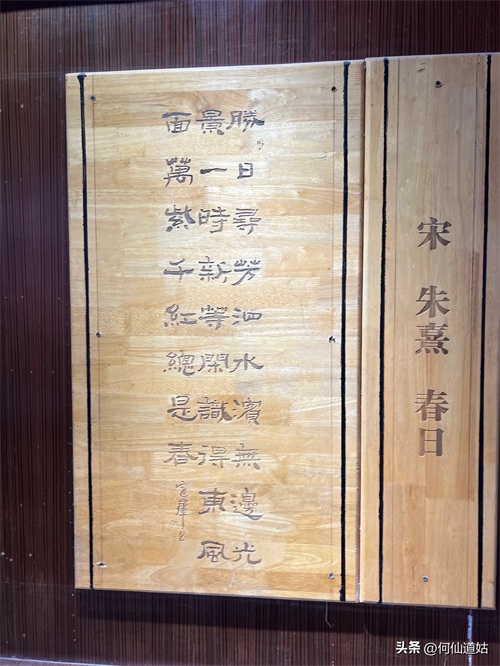 宋 朱熹 春日
勝日尋芳泗水濱無邊光
景一時新等閑識得東風
面萬紫千紅總是春
头条 @何仙道姑